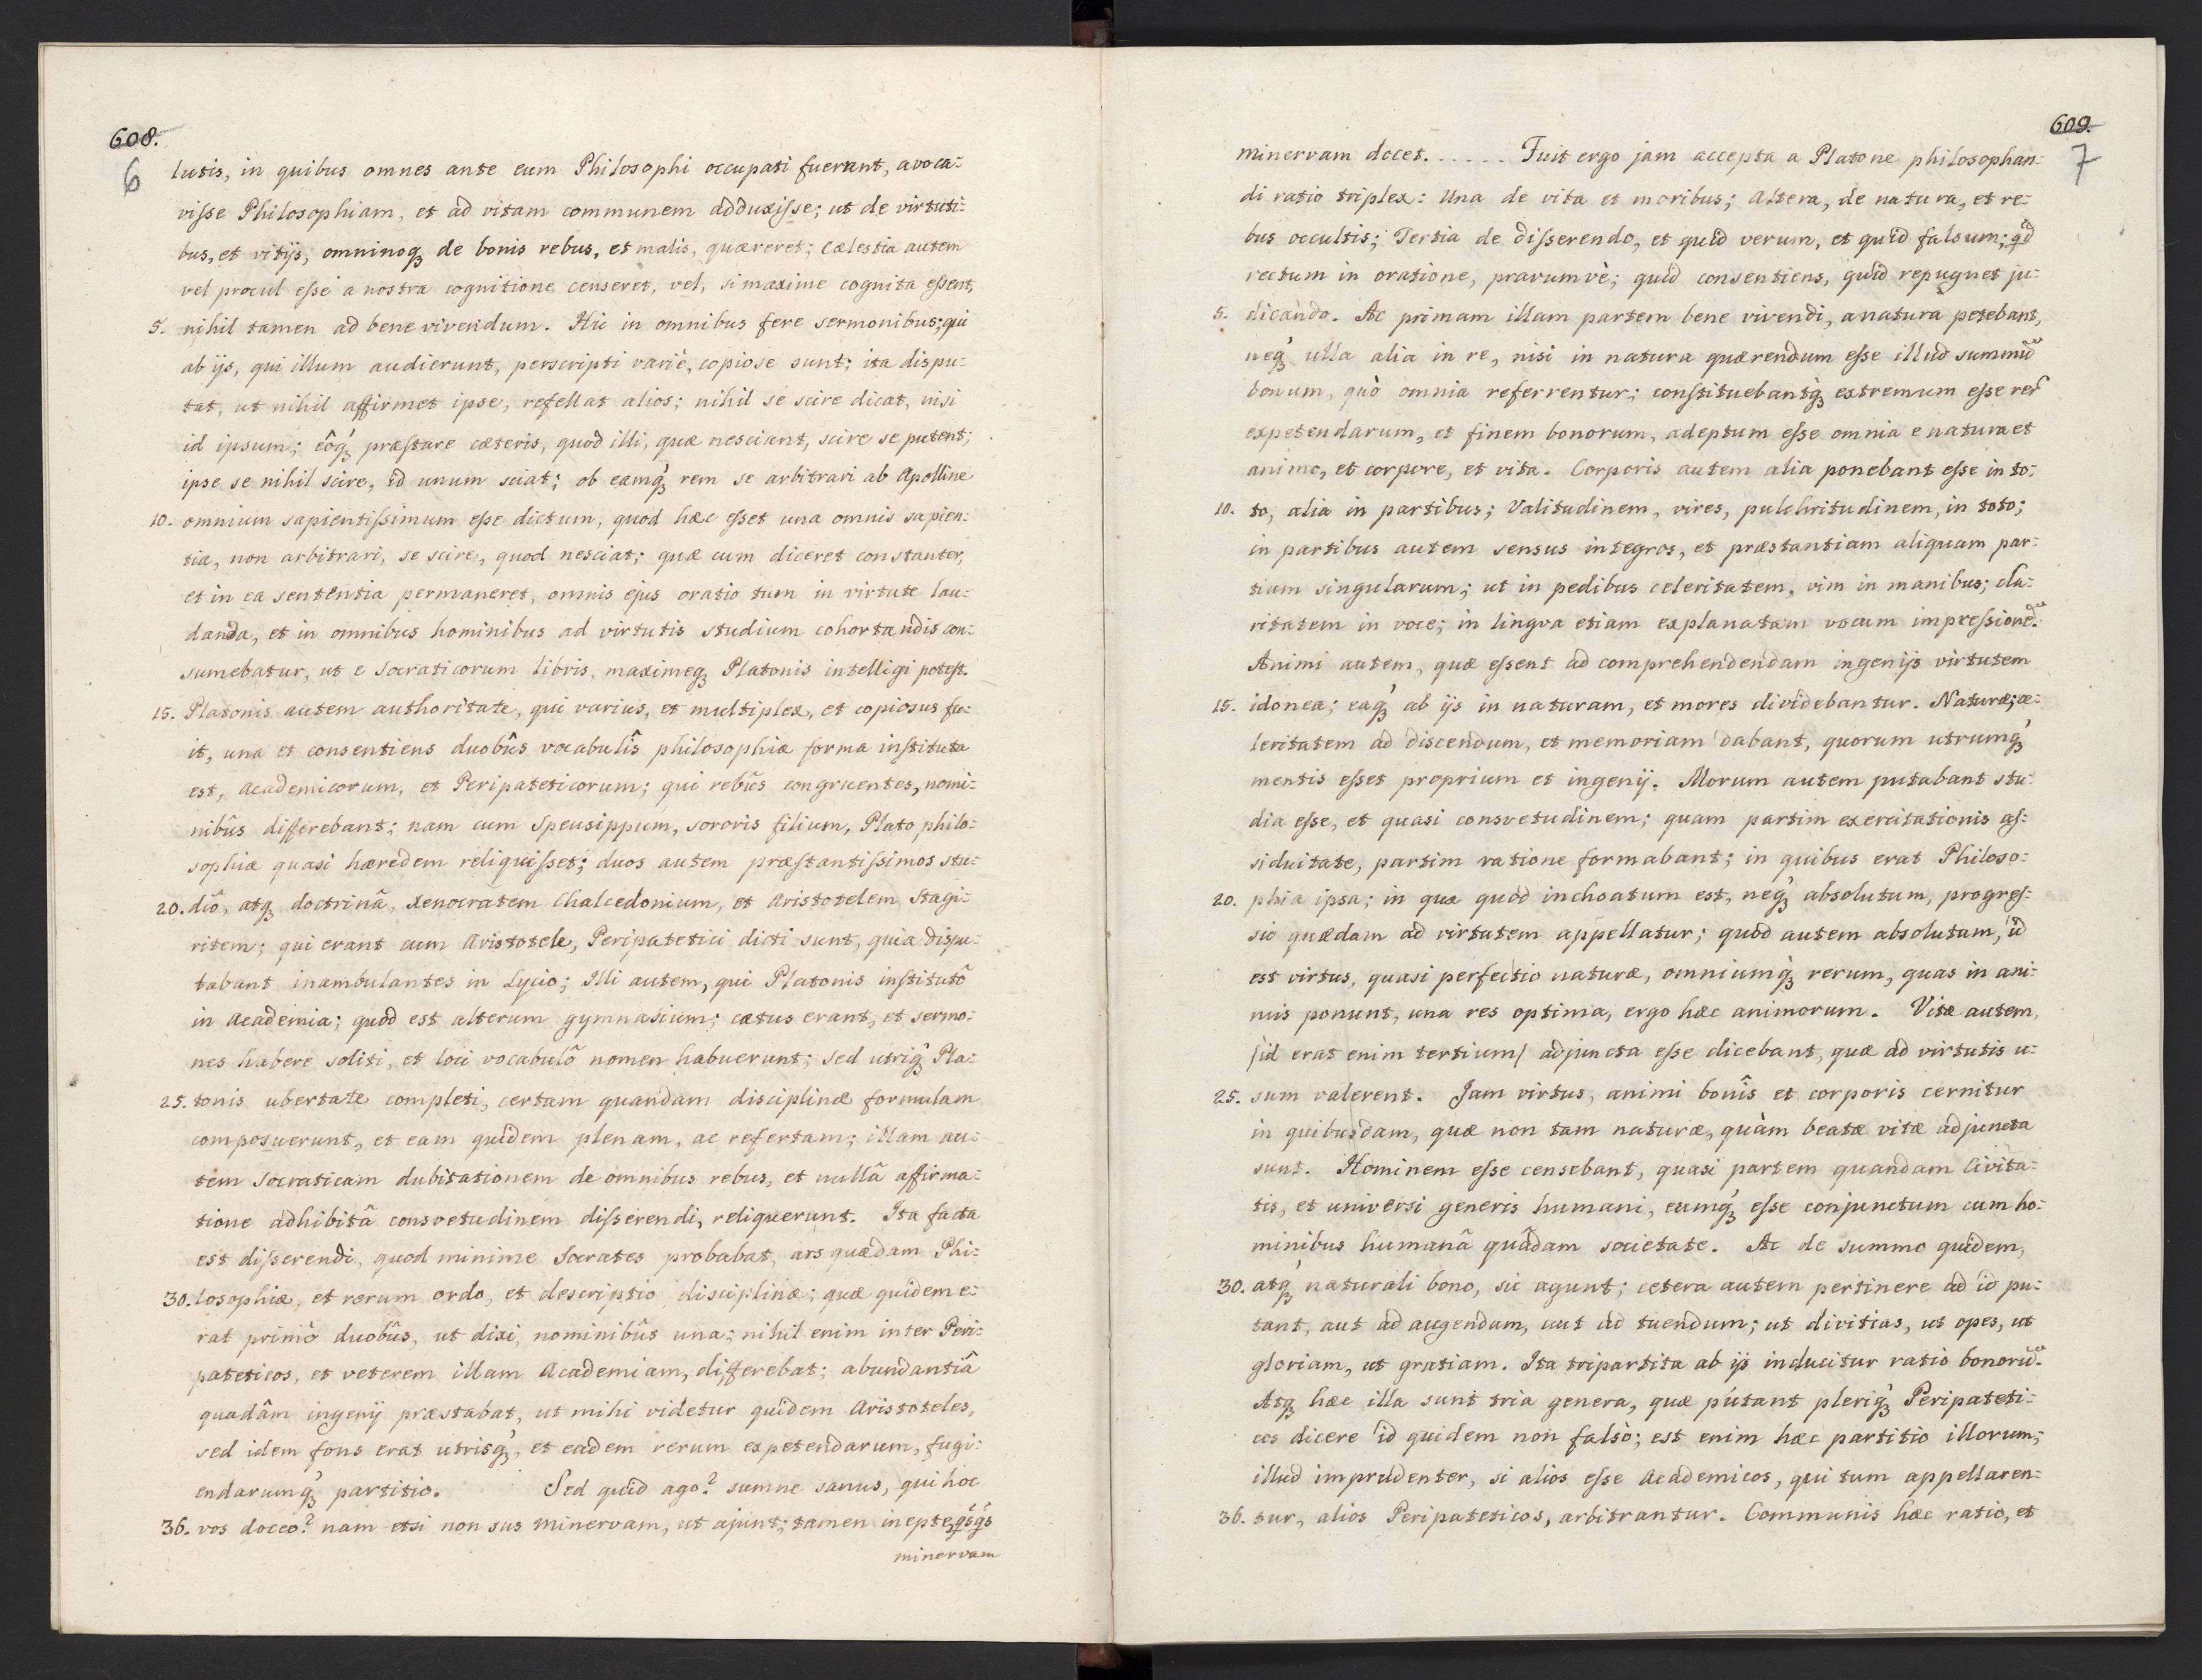 608.
6
lutis, in quibus omnes ante eum Philosophi occupati fuerunt, avoca=
visse Philosophiam, et ad vitam communem adduxisse; ut de virtuti=
bus, et vitijs, omninoqꝫ de bonis rebus, et malis, quæreret; Cælestia autem
vel procul esse a nostra cognitione censeret, vel, si maxime cognita essent,
5. nihil tamen ad bene vivendum. Hic in omnibus fere sermonibus; qui
ab ijs, qui illum audierunt, perscripti variè, copiose sunt; ita dispu=
tat, ut nihil affirmet ipse, refellat alios; nihil se scire dicat, nisi
id ipsum; eôqꝫ præstare cæteris, quod illi, quæ nesciant, scire se putent;
ipse se nihil scire, id unum sciat; ob eamqꝫ rem se arbitrari ab Apolline
10. omnium sapientissimum esse dictum, quod hæc esset una omnis sapien=
tia, non arbitrari, se scire, quod nesciat; quæ cum diceret constanter,
et in ea sententia permaneret, omnis ejus oratio tum in virtute lau=
danda, et in omnibus hominibus ad virtutis studium cohortandis con=
sumebatur, ut e Socraticorum libris, maximeqꝫ Platonis intelligi potest.
15. Platonis autem authoritate, qui varius, et multiplex, et copiosus fu=
it, una et consentiens duobûs vocabulîs philosophiæ forma instituta
est, Academicorum, et Peripateticorum; qui rebûs congruentes, nomi=
nibûs differebant; nam cum Speusippum, sororis filium, Plato philo=
sophiæ quasi hæredem reliquisset; duos autem præstantissimos stu=
20. diô, atqꝫ doctrinâ, Xenocratem Chalcedonium, et Aristotelem Stagi=
ritem; qui erant cum Aristotele, Peripatetici dicti sunt, quia dispu=
tabant inambulantes in Lycio; Illi autem, qui Platonis institutô
in Academia; quod est alterum gymnasium; cætus erant, et sermo=
nes habere soliti, et loci vocabulô nomen habuerunt; sed utriqꝫ Pla=
25. tonis ubertate completi, certam quandam disciplinæ formulam
composuerunt, et eam quidem plenam, ac refertam; illam au=
tem Socraticam dubitationem de omnibus rebus, et nullâ affirma=
tione adhibitâ consvetudinem disserendi, reliquerunt. Ita facta
est disserendi, quod minime Socrates probabat, ars quædam Phi=
30. losophiæ, et rerum ordo, et descriptio disciplinæ; quæ quidem e=
rat primò duobûs, ut dixi, nominibûs una; nihil enim inter Peri=
pateticos, et veterem illam Academiam, differebat; abundantiâ
quadâm ingenij præstabat, ut mihi videtur quidem Aristoteles,
sed idem fons erat utrisqꝫ, et eadem rerum expetendarum, fugi=
endarumqꝫ partitio. Sed quid ago? sumne sanus, qui hoc
36. vos doceo? nam etsi non sus Minervam, ut ajunt; tamen inepte, qsqs
minervam
609.
7
minervam docet. . . . . . Fuit ergo jam accepta a Platone philosophan=
di ratio triplex: Una de vita et moribus; Altera, de natura, et re=
bus occultis; Tertia de disserendo, et quid verum, et quid falsum; qd
rectum in oratione, pravumvè; quid consentiens, quid repugnet ju=
5. dicando. Ac primam illam partem bene vivendi, a natura petebant,
neqꝫ ulla alia in re, nisi in natura quærendum esse illud summū
bonum, quò omnia referrentur; constituebantqꝫ extremum esse rer
expetendarum, et finem bonorum, adeptum esse omnia e natura et
animo, et corpore, et vita. Corporis autem alia ponebant esse in to=
10. to, alia in partibus; Valitudinem, vires, pulchritudinem, in toto;
in partibus autem sensus integros, et præstantiam aliquam par=
tium singularum; ut in pedibus celeritatem, vim in manibus; cla=
ritatem in voce; in lingva etiam explanatam vocum impressionē.
Animi autem, quæ essent ad comprehendendam ingenijs virtutem
15. idonea; eaqꝫ ab ijs in naturam, et mores dividebantur. Naturæ; ce=
leritatem ad discendum, et memoriam dabant, quorum utrumqꝫ
mentis esset proprium et ingenij. Morum autem putabant stu=
dia esse, et quasi consvetudinem; quam partim exercitationis as=
siduitate, partim ratione formabant; in quibus erat Philoso=
20. phia ipsa; in qua quod inchoatum est, neqꝫ absolutum, progres=
sio quædam ad virtutem appellatur; quod autem absolutum, id
est virtus, quasi perfectio naturæ, omniumqꝫ rerum, quas in ani=
mis ponunt, una res optima, ergo hæc animorum. Vitæ autem,
/id erat enim tertium/ adjuncta esse dicebant, quæ ad virtutis u=
25. sum valerent. Jam virtus, animi bonîs et corporis cernitur
in quibusdam, quæ non tam naturæ, quàm beatæ vitæ adjuncta
sunt. Hominem esse censebant, quasi partem quandam Civita=
tis, et universi generis humani, eumqꝫ esse conjunctum cum ho=
minibus humanâ quâdam societate. Ac de summo quidem,
30. atqꝫ naturali bono, sic agunt; cetera autem pertinere ad id pu=
tant, aut ad augendum, aut ad tuendum; ut divitias, ut opes, ut
gloriam, ut gratiam. Ita tripartita ab ijs inducitur ratio bonorū.
Atqꝫ hæc illa sunt tria genera, quæ putant pleriqꝫ Peripateti=
cos dicere id quidem non falsò; est enim hæc partitio illorum;
illud imprudenter, si alios esse Academicos, qui tum appellaren=
36. tur, alios Peripateticos, arbitrantur. Communis hæc ratio, et